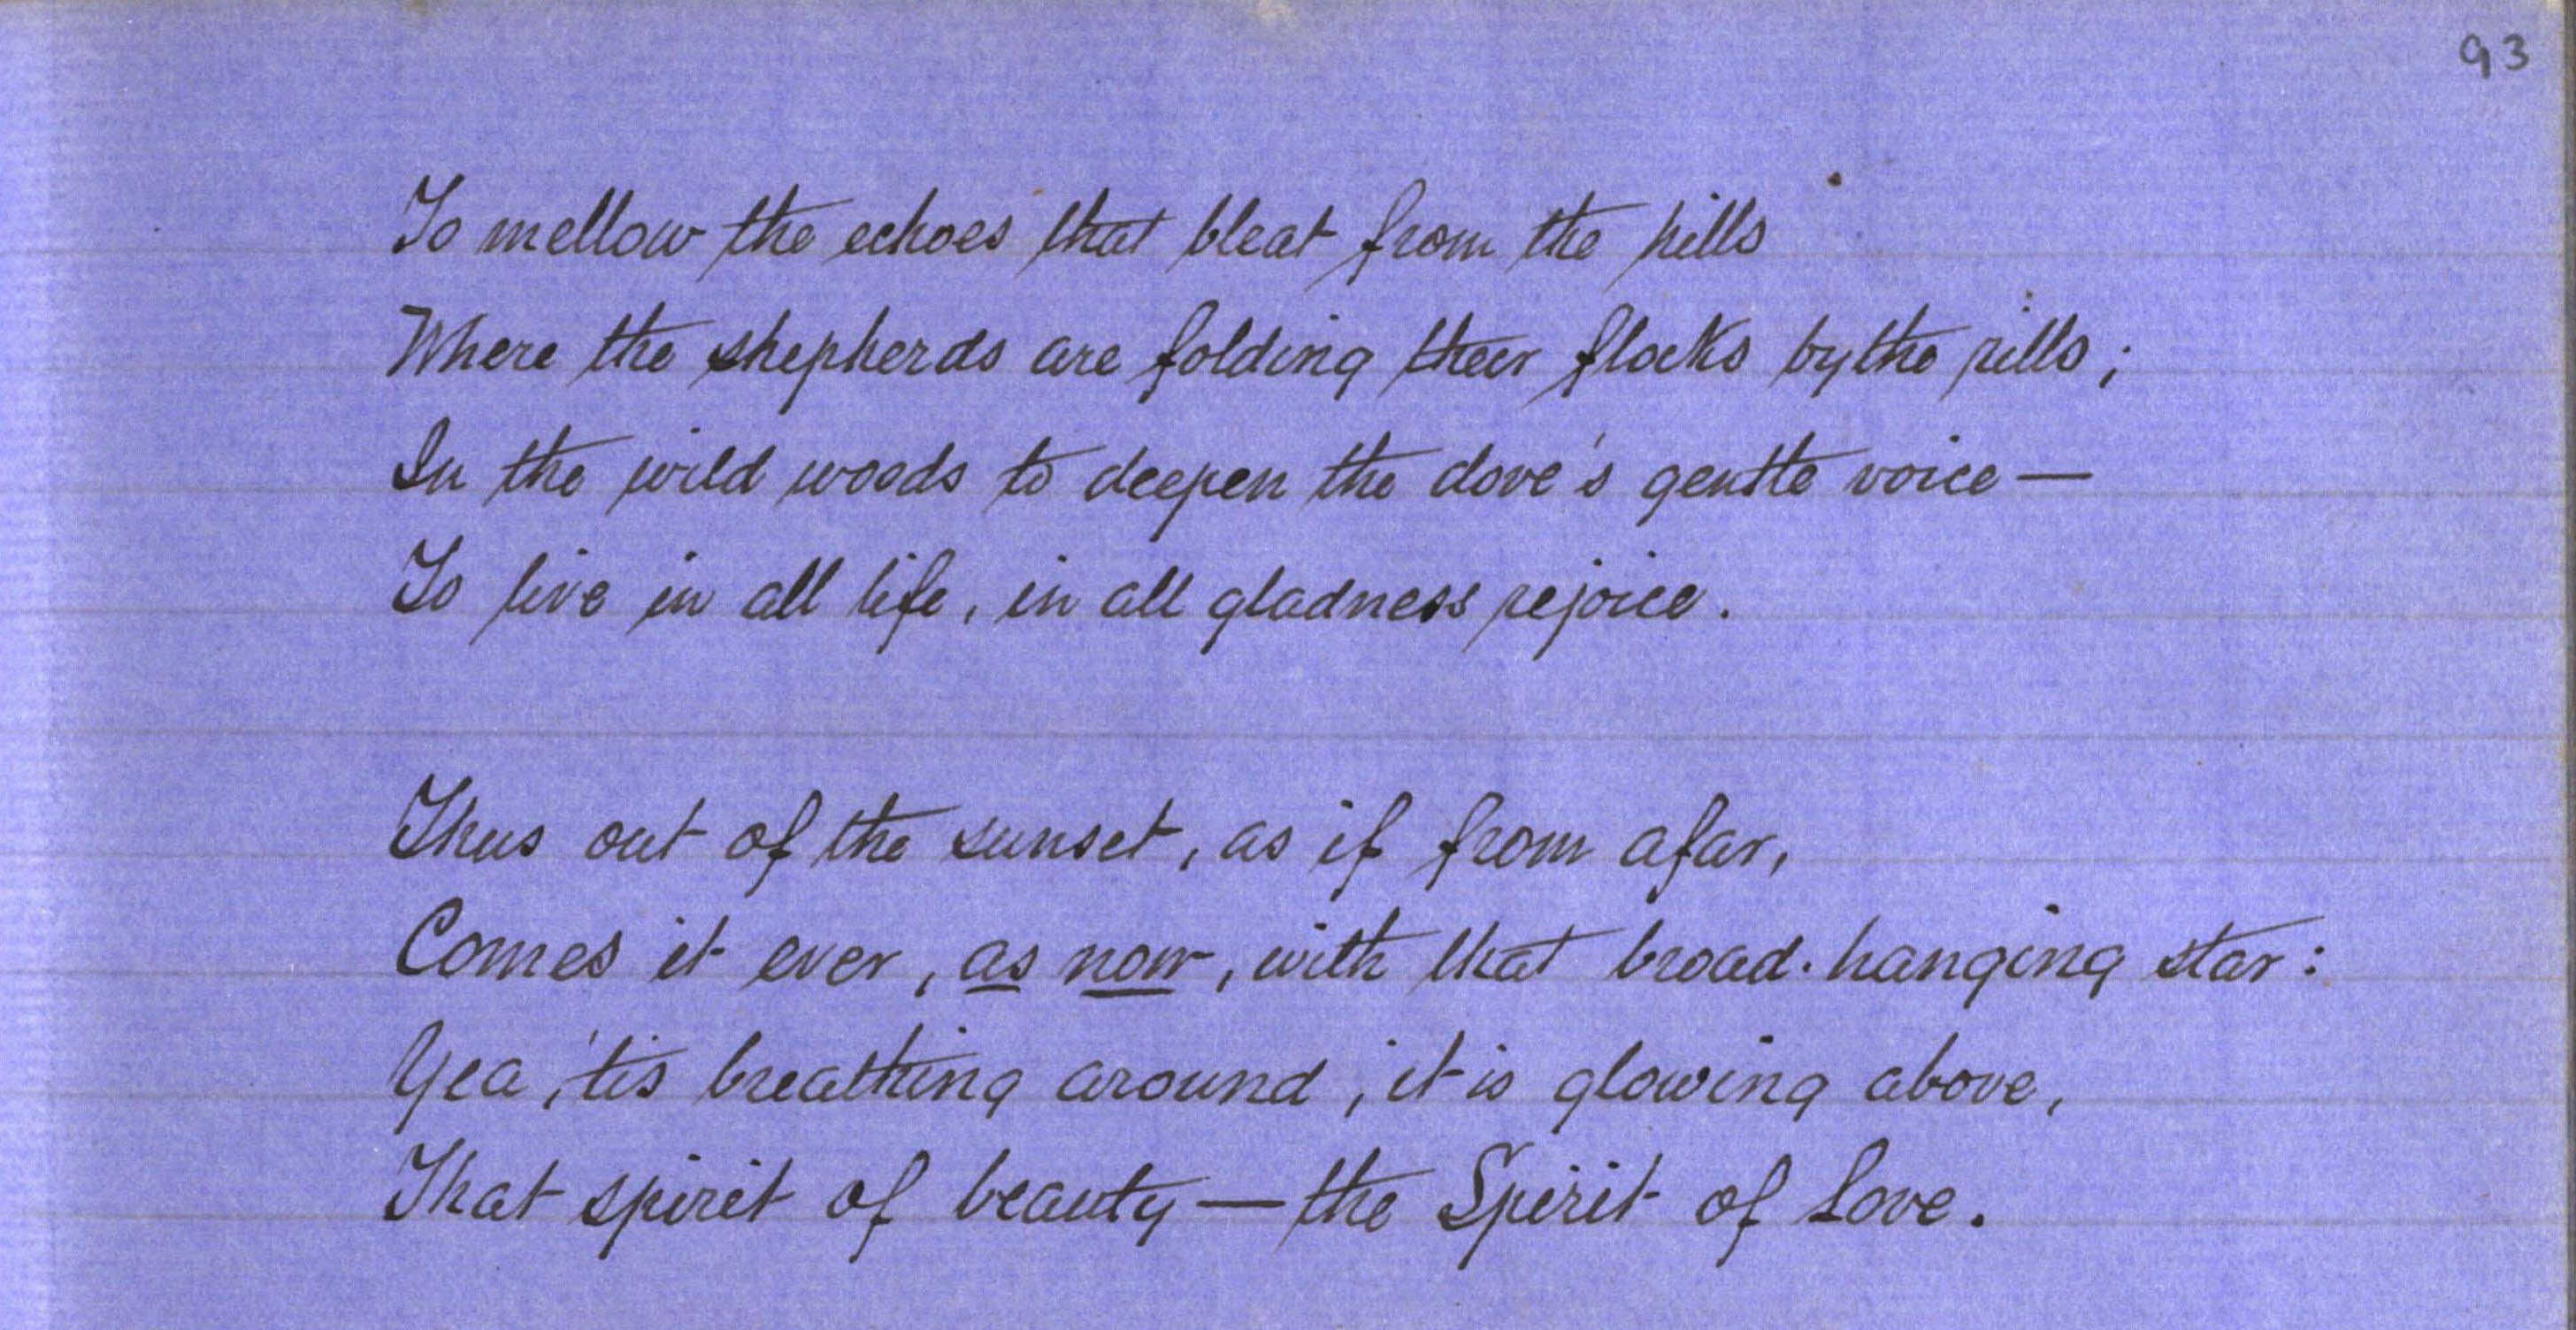 93
To mellow the echoes that bleat from the hills
Where the shepherds are folding their flocks by the rills;
In the wild woods to deepen the dove's gentle voice —
To live in all life, in all gladness rejoice.
Thus out of the sunset, as if from afar,
Comes it ever, as now, with that broad-hanging star:
Yea, 'tis breathing around; it is glowing above,
That spirit of beauty — the Spirit of Love.